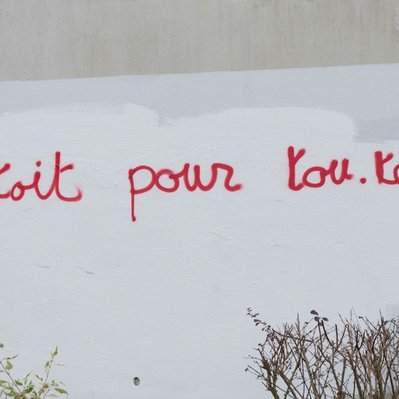 toit pour tou.te